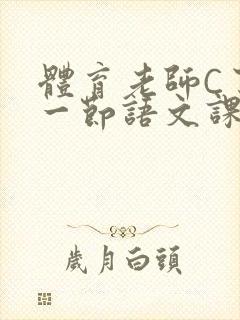 體育老師C
一節語文課
歲月白頭